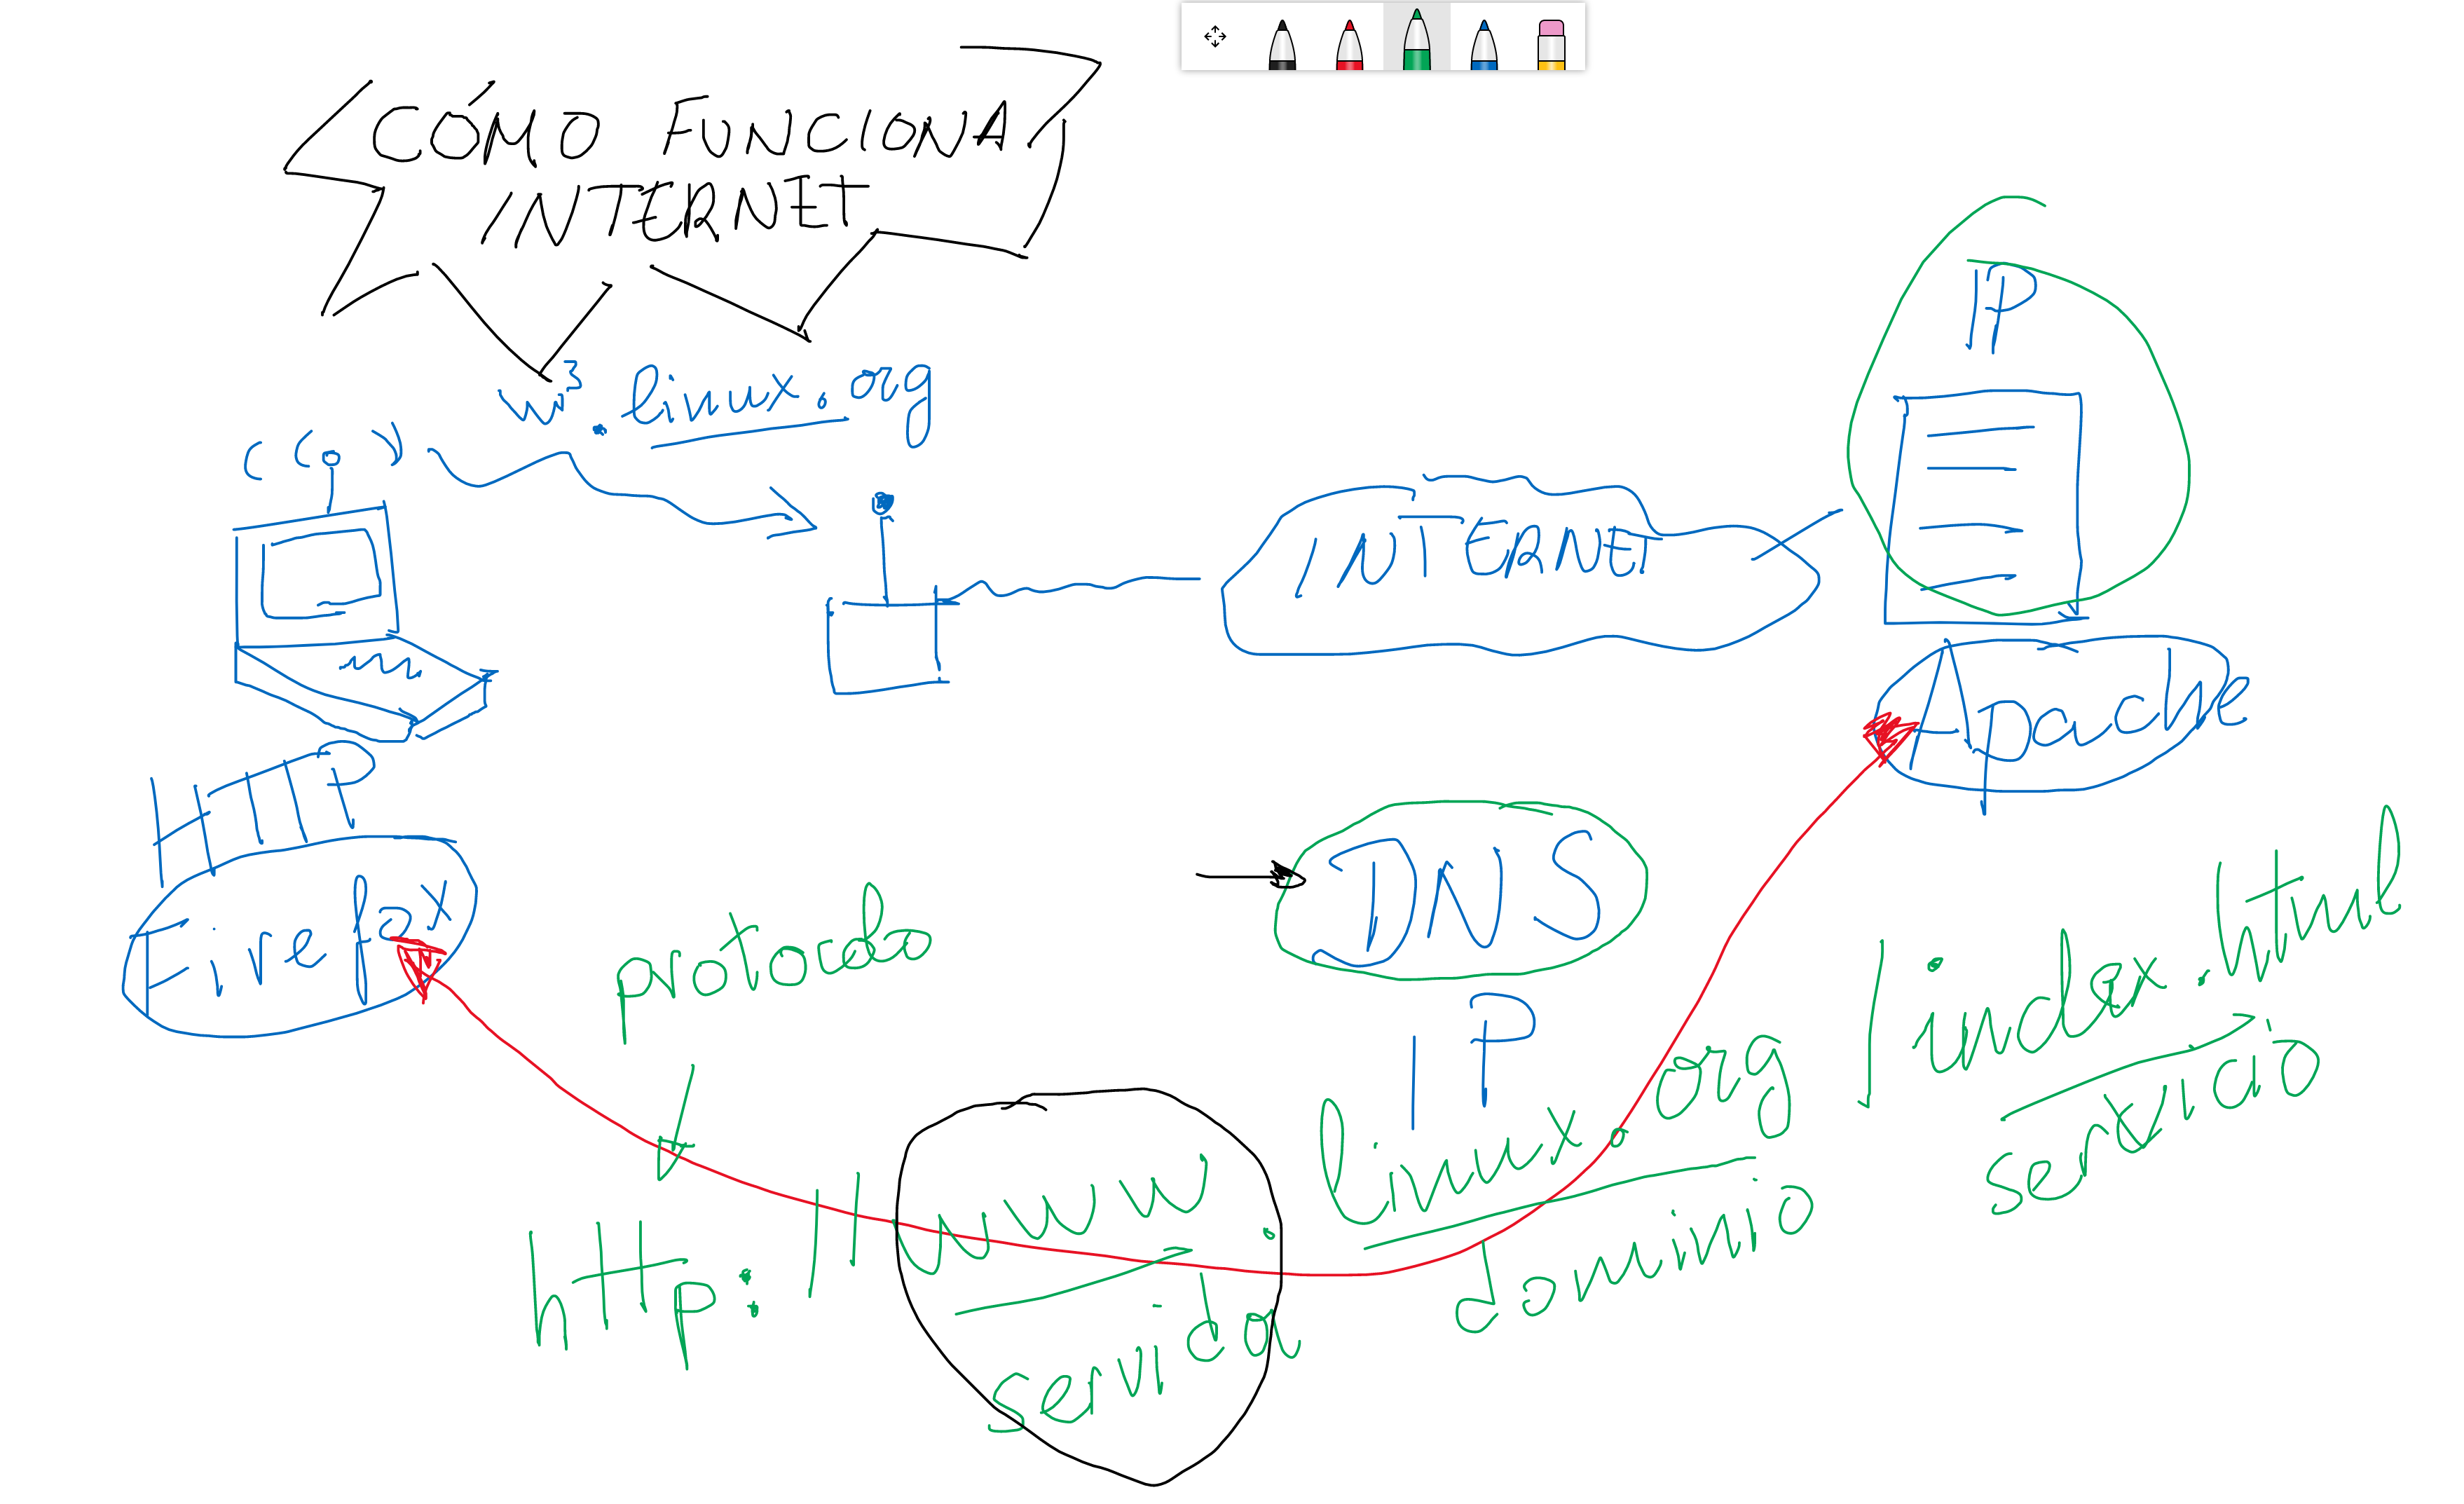 CÓMO FUNCIONA
INTERNET
w³.linux.org
IP
INTERNET
Apache
HTTP
Firefox
DNS
IP
protocolo
http://www.linux.org/index.html
servidor
dominio
servicio